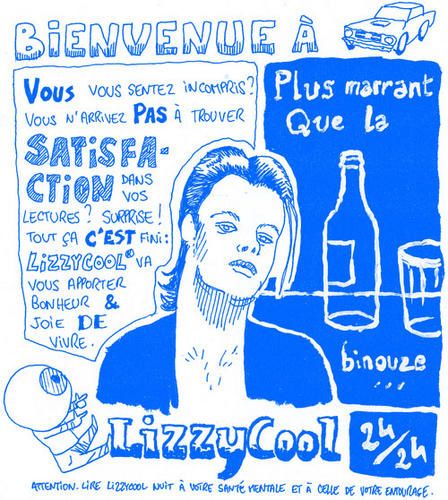 BiENVENUE À
Vous VOUS SENTEZ INCOMPRIS?
VOUS N'ARRIVEZ PAS À TROUVER
SATiSFA-
CTiON DANS
VOS
LECTURES? SURPRISE!
TOUT ÇA C'EST FINI:
LIZZYCOOL® VA
VOUS APPORTER
BONHEUR &
JOIE DE
VIVRE.
Plus marrant
Que la
binouze
...
LizzyCool
24/24
ATTENTION. LIRE LIZZYCOOL NUIT À VOTRE SANTÉ MENTALE ET À CELLE DE VOTRE ENTOURAGE.